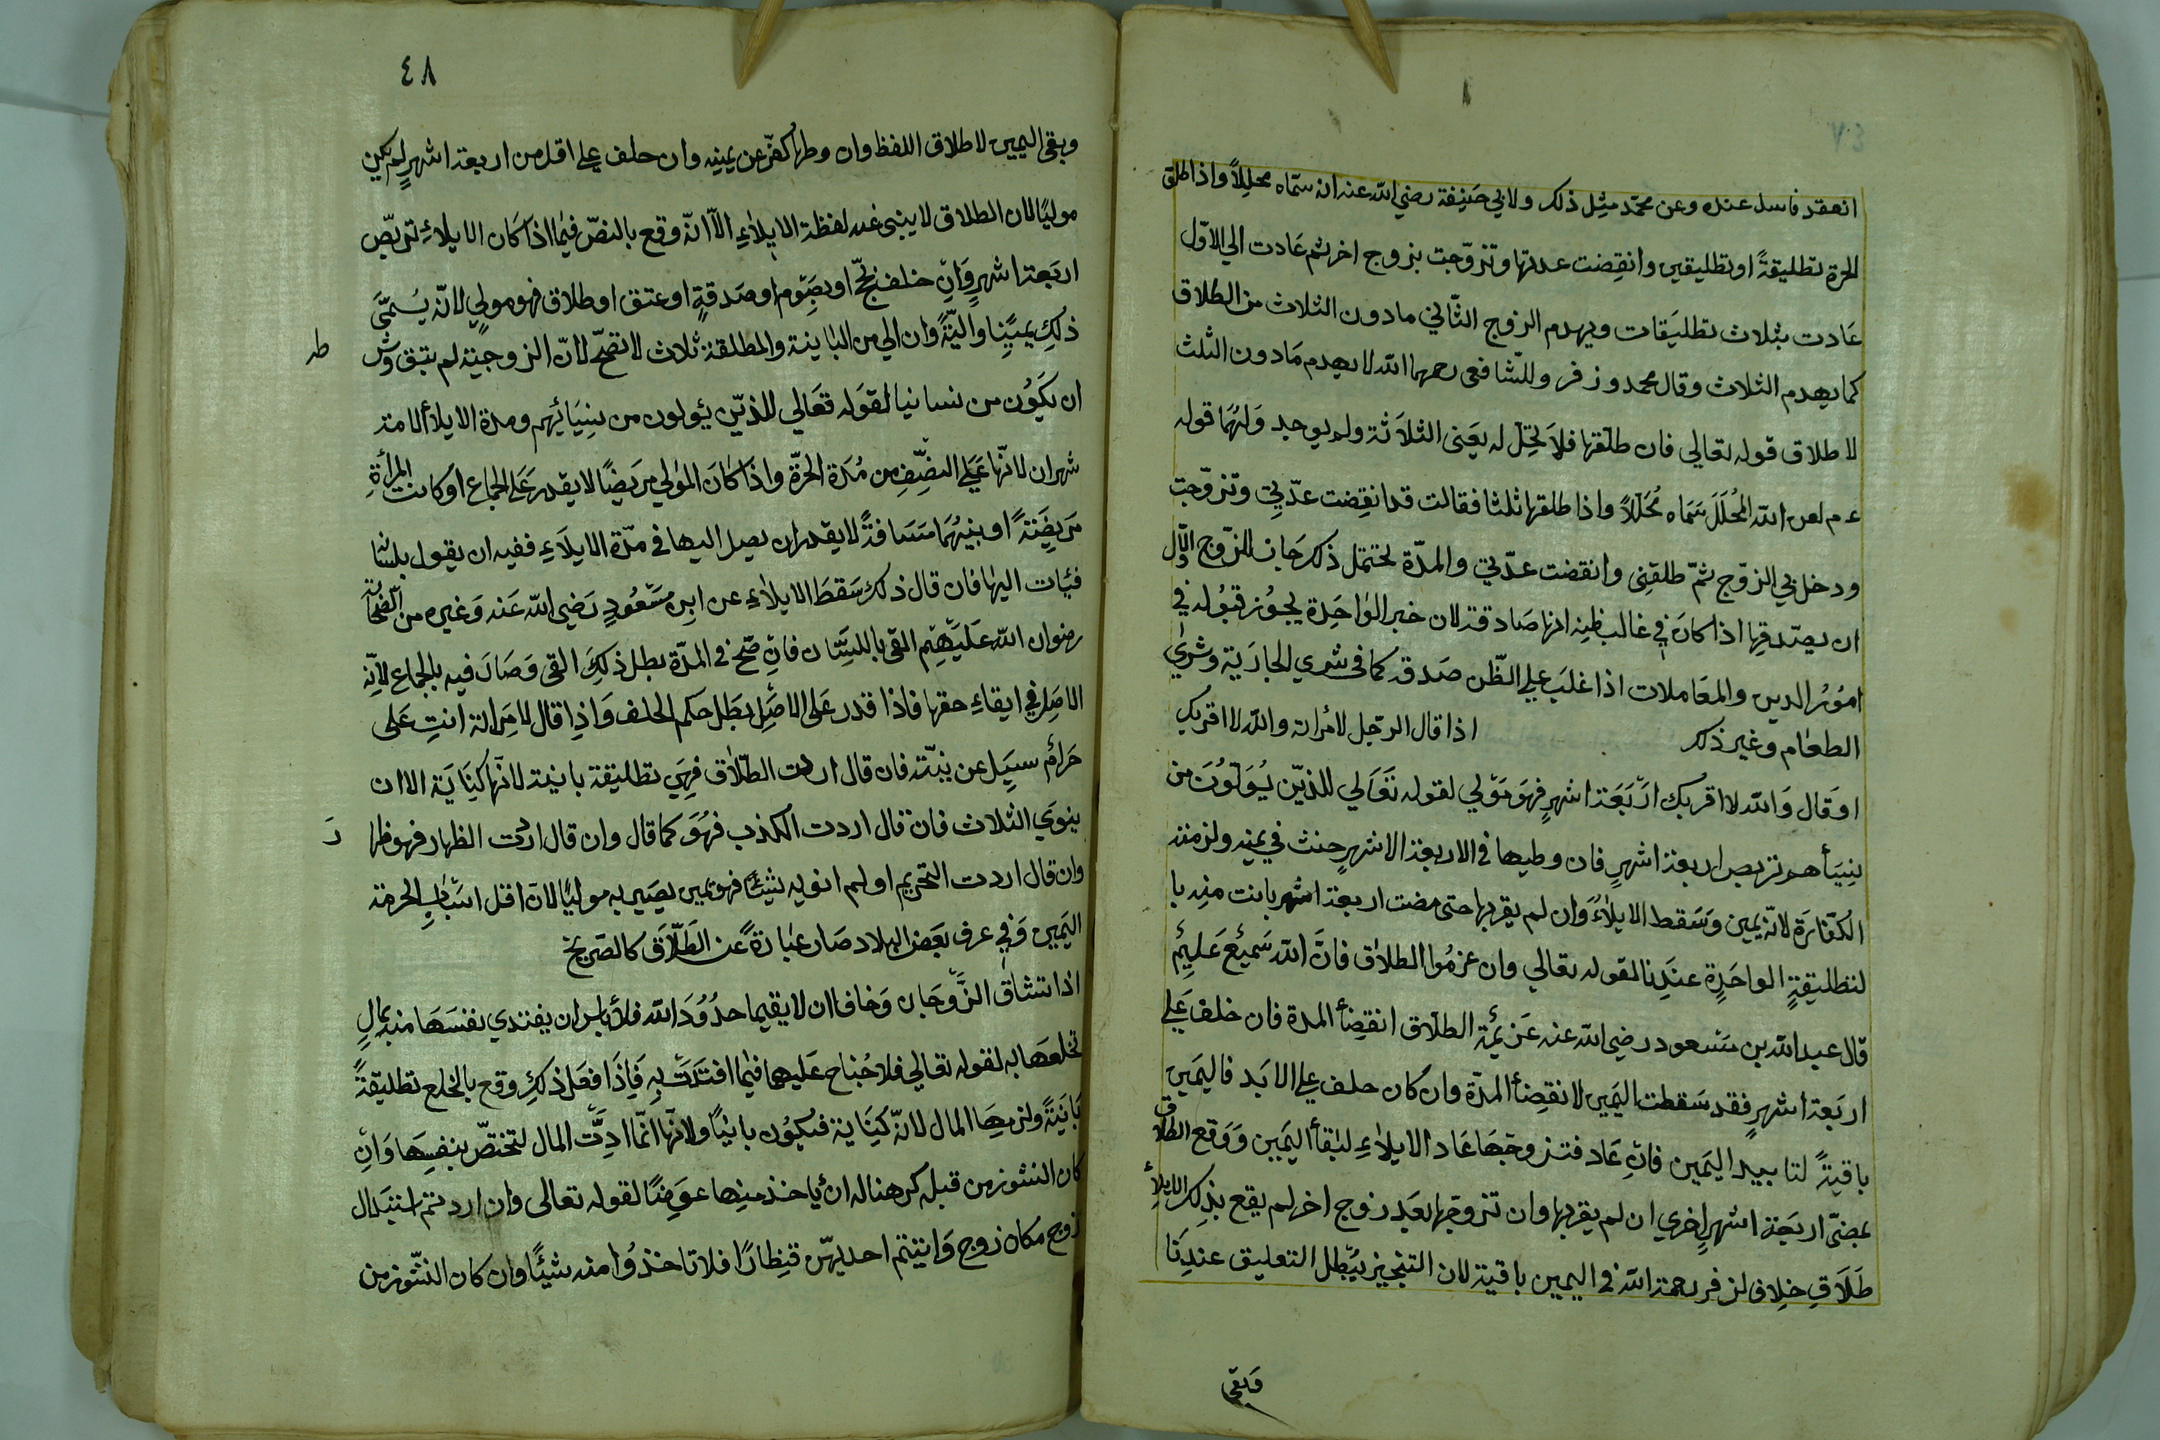 انعقد فاسد عنده وعن محمّد مثل ذلك ولابي حنيفة رضي الله عنه انه سمّاه محلِلاً واذا طلق
الحرة تطليقةً او تطليقين وانقضت عدتها وتزوّجت بزوج اخر ثم عادت الي الاوّل
عادت بثلاث تطليقات ويهدم الزوج الثّاني مادون الثلاث من الطلاق
كما يهدم الثلاث وقال محمد وزفر وللشّافعي رحمهما الله لا يهدم مادون الثلث
لاطلاق قوله تعالي فان طلّقها فلا تحِلّ له يعَنى الثلاثة ولم يوجد وَلهُمَا قوله
ءم لعن الله المُحلَلَ سَمَاه مُحَلِلاً واذا طلقها ثلثا فقالت قد انقضت عدّتِي وتزوّجت
ودخل بي الزوّج ثمّ طلقني وانقضت عدّتي والمدّة تحتمل ذلك جَاز للزّوج الاوّل
ان يصدقها اذا كان في غالب ظنه انها صَادقة لان خبر الواحدة يجوز قبوله في
امور الدين والمعَاملات اذا غلب علي الظّن صدقه كما في شري الجارَية وشري
الطعام وغير ذلك اذا قال الرجل لامرأته والله لا اقربك
او قال وَالله لا اقربك ارَبَعَة اشهرٍ فهوَ مَوْلي لقوله تَعَالي للذيّن يُوَلوُنَ من
نِسَأهم تربص اربعة اشهرٍ فان وطيها في الاربعة الاشهرٍ حنث في يمنه ولزمته
الكفّارَة لانّه يمين وَسَقط الايلاءَ وَان لم يقربها حتى مضت اربعة اشهر بانت منِه با
لتطليقةٍ الواحَدِة عنَدِنا لقوله تعالي وان عزمُوا الطلاق فانَّ الله سَميعُ عَليِمُ
قال عبد الله بن مسَعود رضي الله عنه عَزيمُة الطلاق انقِضأ المدة فان حلف عَلي
اربَعة اشهرٍ فقد سَقطت اليَمين لانقِضأ المدّة وان كان حلف علي الابَد فاليَمين
باقيَةً لتا بيد اليَمين فانِ عَاد فتزوجَها عَاد الايلاءِ لبَقأ اليَمين وَوَقع الطلاق
بمضّى اربَعة اشهرٍ اخري ان لم يقربها وان تزوجّها بعَد زوج اخر لم يقع بذلك الايلأ
طَلَاقِ خلاف لزفر رحمة الله في اليمين باقية لان التنجيز يبُطل التعليق عندِنَا
وَبقي
٤٨
وبقى اليمين لاطلاق اللفظ وان وطها كفّر عن يمنِه وان حلف علي اقل من اربعة اشهرٍ لم يكن
موليًا لان الطلاق لا ينبئ عنه لفظة الايلاءِ الّا انّه وقع بالنصّ فيمَا اذا كَان الايلاءِ لتربّص
اربَعة اشهرٍ وَانِ حَلف بحَجّ او بصَومٍ او صَدقةٍ او عتق او طلاق فهو موليِ لانّه يُسَمّىَ
ذلكِ يميِنا والنيّةً وان الي من الباينة والمطلقة ثلاث لا تصحّ لانّ الزوجيّة لم تبق وشر
ط
ان يكَوُن من نسائنا لقوله تعَالي للذيّن يئولون من نِسَائِهم ومدة الايلأ الامة
شهران لانّها عَلي النصّفِ من مُدَة الحرّة واذَا كَانَ الموُلي مرَيضًا لا يقدر عَلى الجماع او كانت المرأة
مَريضَةً او بينهُمَا مَسَافةً لا يقدر ان يصل اليها في مدّة الايلاءِ ففيه ان يقول بلسَا
فيات اليها فان قال ذلك سَقطَ الايلاءِ عن ابنِ مسَعُودٍ رَضي الله عَنه وَغيره من الصَحَابة
رضوان الله عَليَهْمِ الفى باللسَان فانِ صّح في المدّة بطل ذلكَ الفى وَصَارَ فيه بالجماع لانّه
الاصَلِ في ايقاءِ حقها فاذا قدر عَلى الاصَلِ بطَل حكم الحلف وَاذِا قال لامرَاته انتِ عَلى
حَرامُ سيِل عن نيّته فان قال اردت الطّلاق فهِيَ تطليقة بانية لانّها كنِاَيَة الا ان
ينوَي الثلاث فان قال اردت الكذب فهُوَ كما قال وان قال اردت الظهار فهو ظها
رَ
وان قال اردت التحريم او لم انو به شيئًا فهو يمَين يصَير به موليًا لانّ اقل اسَباب الحرمة
اليَمين وَفي عرف بعَض البلاد صَار عبَارةً عن الطّلَاقَ كالصّريح
اذا تشاق الزَّوجان وَخافا ان لا يقيما حدُوُدَ الله فلا بأس ان يفتدي نفسَهَا منه بمالٍ
تخلعَها به لقوله تعَالي فلا جُناح عَليهما فيمَا افتدَت بهِ فَاذِا فعَل ذلكِ وقع بالخلع تطليقةً
بَايَنةً ولزمِهَا المال لانّه كنِاية فيكوُن باينًا ولانهّا انمّا ادتِ المال لتختصّ بنفسِهَا وَانِ
كان النشوز من قبله كرهنا له ان يأخذ منها عوِضًا لقوله تعالى وان اردتم استبدال
زوج مكان زوج وَاتيتم احديهنّ قنِطارًا فلا تاخذوُا منه شيئًا وان كان النشّوز من